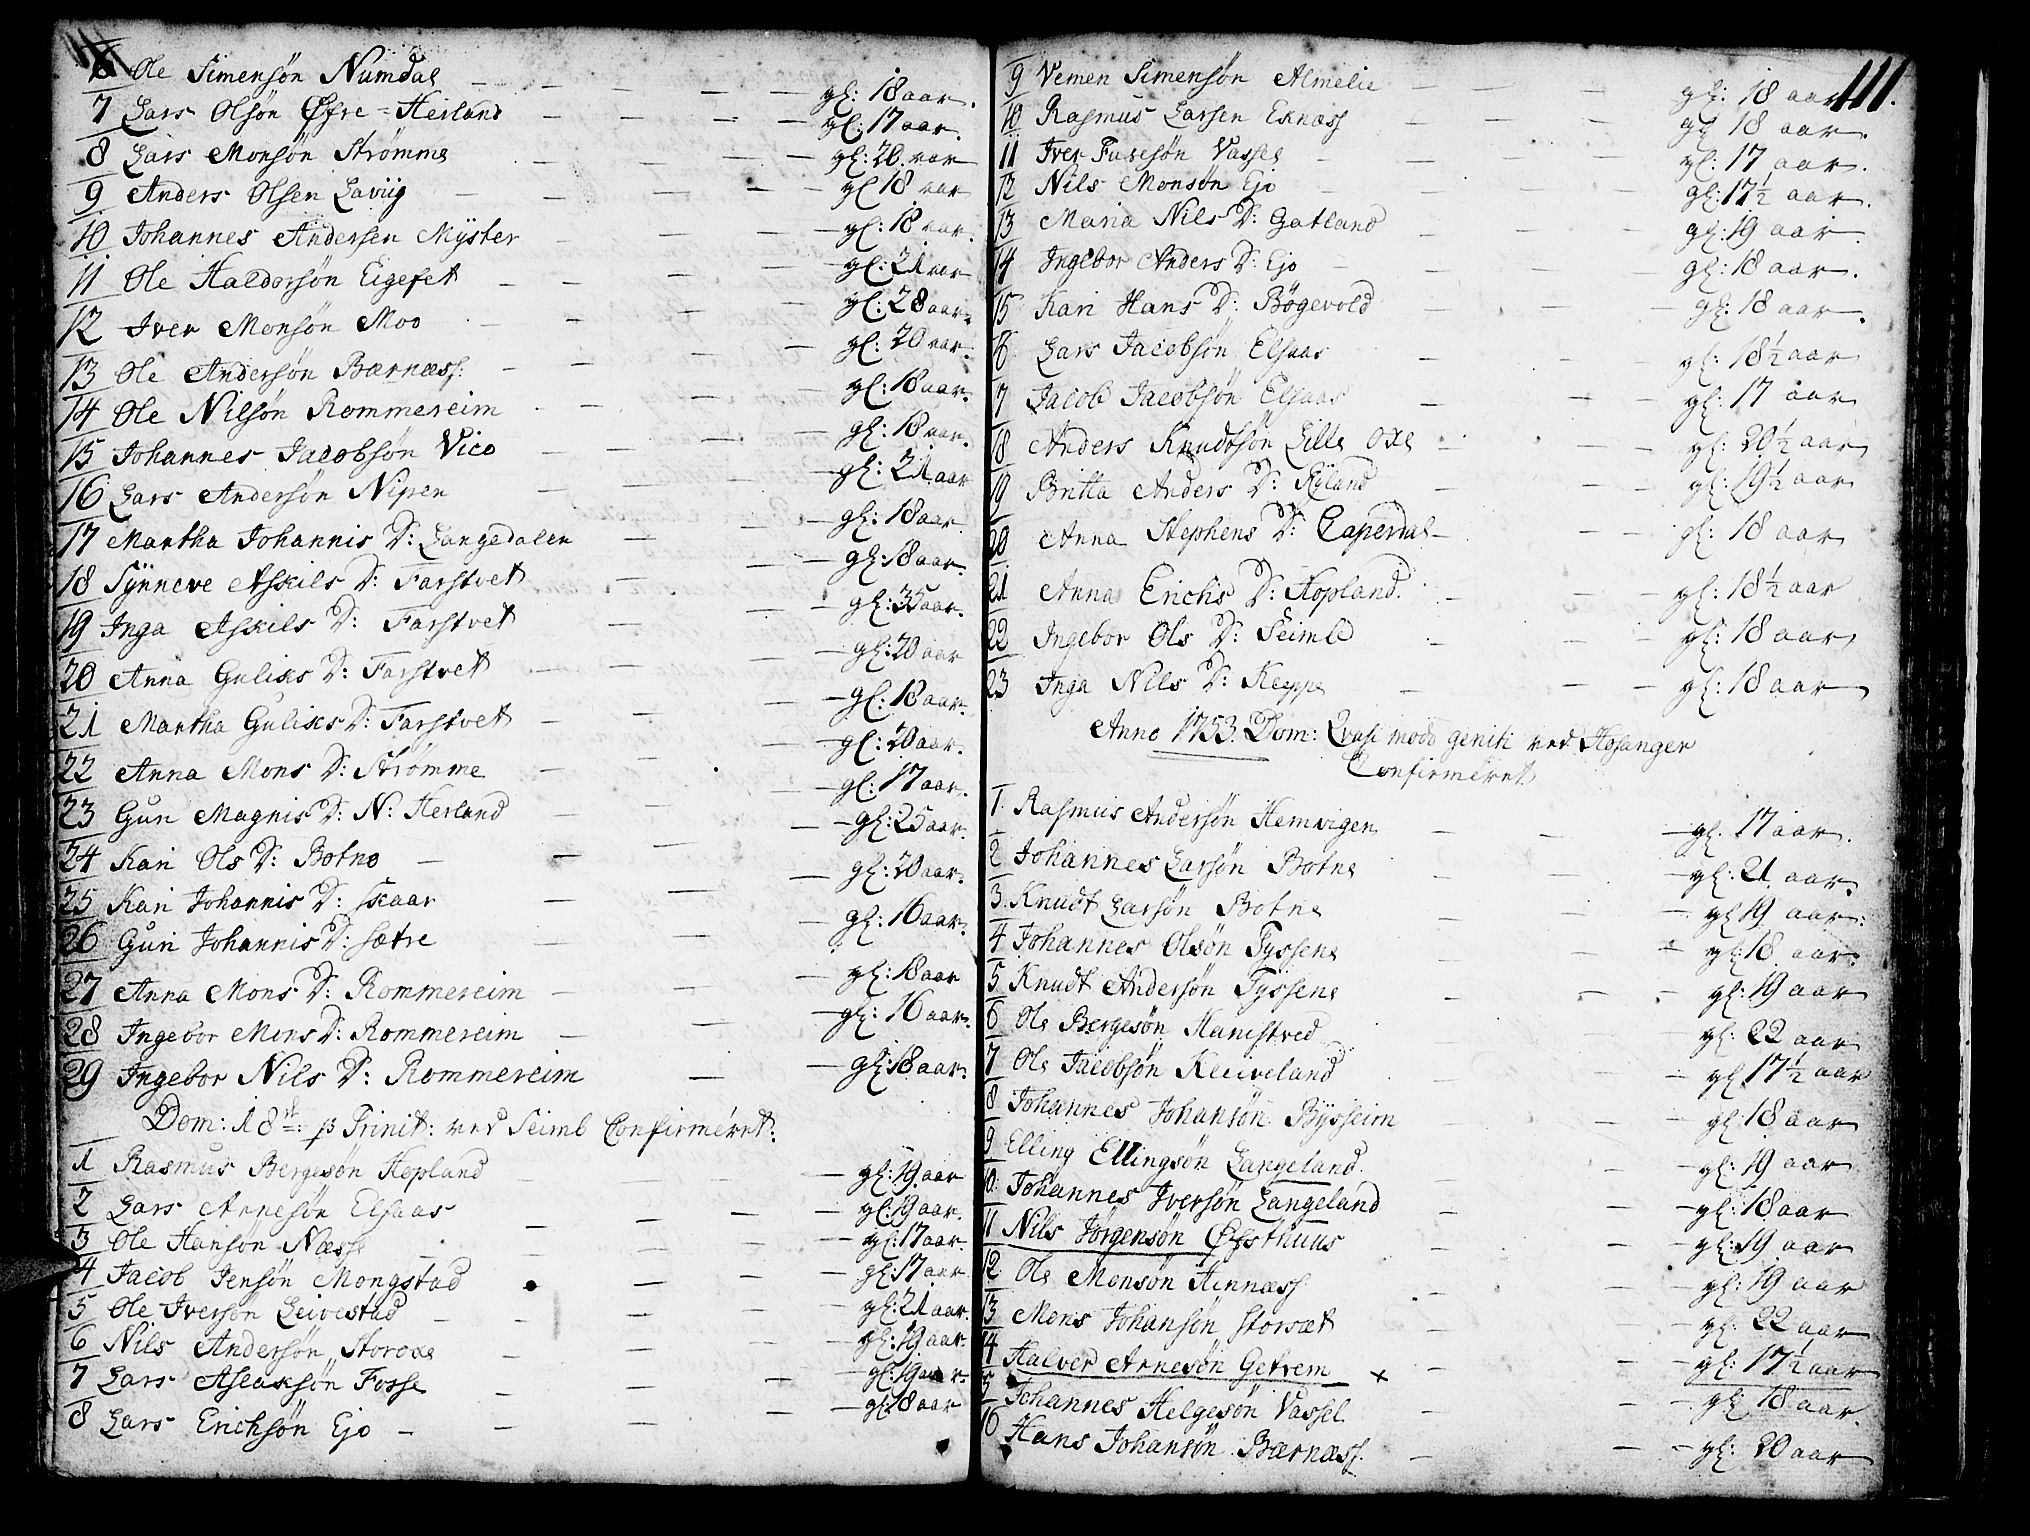 6 Ole Simensøn Numdal gl: 18 aar.
7 Lars Olsøn Øfre-Heiland gl: 17 aar.
8 Lars Monsøn Strømme gl: 20. aar
9 Anders Olsen Laviig gl 18 aar
10 Johannes Andersen Myster gl: 18 aar.
11 Ole Haldorsøn Eigefet gl: 21 aar
12 Iver Monsøn Moo gl: 28 aar.
13 Ole Andersøn Bærnæss: gl: 20 aar.
14 Ole Nilsøn Rommereim gl: 18 aar.
15 Johannes Jacobsøn Vico gl: 18 aar.
16 Lars Andersøn Nipen gl: 21 aar
17 Martha Johannis D: Langedalen gl: 18 aar
18 Synneve Askils D: Farstvet gl: 18 aar.
19 Inga Askils D: Farstvet gl: 35 aar.
20 Anna Guliks D: Farstvet gl: 20 aar
21 Martha Guliks D: Farstvet gl: 18 aar.
22 Anna Mons D: Strømme gl: 20 aar.
23 Gun Magnis D: N: Herland gl: 17 aar.
24 Kari Ols D: Botne gl: 25 aar.
25 Kari Johannis D: Skaar gl: 20 aar.
26 Guri Johannis D: Sætre gl: 16 aar.
27 Anna Mons D: Rommereim gl: 18 aar
28 Ingebor Mons D: Rommereim gl: 16 aar.
29 Ingebor Nils D: Rommereim gl: 18 aar.
Dom: 18 p Trinit: ved Seimb Confirmeret:
1 Rasmus Bergesøn Hopland gl: 19 aar
2 Lars Arnesøn Elsaas gl: 19 aar.
3 Ole Hansøn Næsse gl: 17 aar.
4 Jacob Jensøn Mongstad gl: 17 aar
5 Ole Iversøn Leivestad gl: 21 aar.
6 Nils Andersøn Storoxe gl: 19 aar.
7 Lars Aslaksøn Fosse gl: 19 aar.
8 Lars Erichsøn Ejo gl: 18 aar
111.
9 Vemen Simensøn Almelie gl: 18 aar
10 Rasmus Larsen Eknæss gl 18 aar.
11 Iver Fusesøn Vassel gl: 17 aar.
12 Nils Monsøn Ejo gl: 17½ aar.
13 Maria Nils D: Gatland gl: 19 aar.
14 Ingebor Anders D: Ejo gl: 18 aar.
15 Kari Hans D: Bøgevold gl: 18 aar.
16 Lars Jacobsøn Elsaas gl: 18½ aar
17 Jacob Jacobsøn Elsaas gl: 17 aar
18 Anders Knudtsøn Lille Oxe gl: 20½ aar
19 Britta Anders D: Ryland gl: 19½ aar
20 Anna Stephens D: Eaperdal gl: 18 aar
21 Anna Erichs D: Hopland. gl: 18½ aar
22 Ingebor Ols D: Seimb gl: 18 aar
23 Inga Nils D: Keppe gl: 18 aar
Anno 1753. Dom: Qvasi modo geniti ved Hosanger
Confirmeret
1. Rasmus Andersøn Hemvigen gl. 17 aar.
2 Johannes Larsøn Botne gl: 21 aar.
3. Knudt Larsøn Botne gl 19 aar.
4 Johannes Olsøn Tyssene gl: 18. aar.
5 Knudt Andersøn Tyssene gl: 19 aar
6 Ole Bergesøn Hamestved gl: 22 aar
7 Ole Jacobsøn Kleiveland gl 17½ aar
8 Johannes Johansøn Bysseim gl 18 aar
9 Elling Ellingsøn Langeland. gl: 19 aar
10. Johannes Iversøn Langeland gl: 18 aar
11 Nils Jørgensøn Østhuus gl: 19 aar
12. Ole Monsøn Hinnæss gl: 19 aar
13 Mons Johansøn Storsæt gl: 22 aar
14 Halver Arnesøn Getrem + gl: 17½ aar
15 Johannes Helgesøn Vassel gl: 18 aar.
16 Hans Johansøn Bærnæss. gl: 20 aar